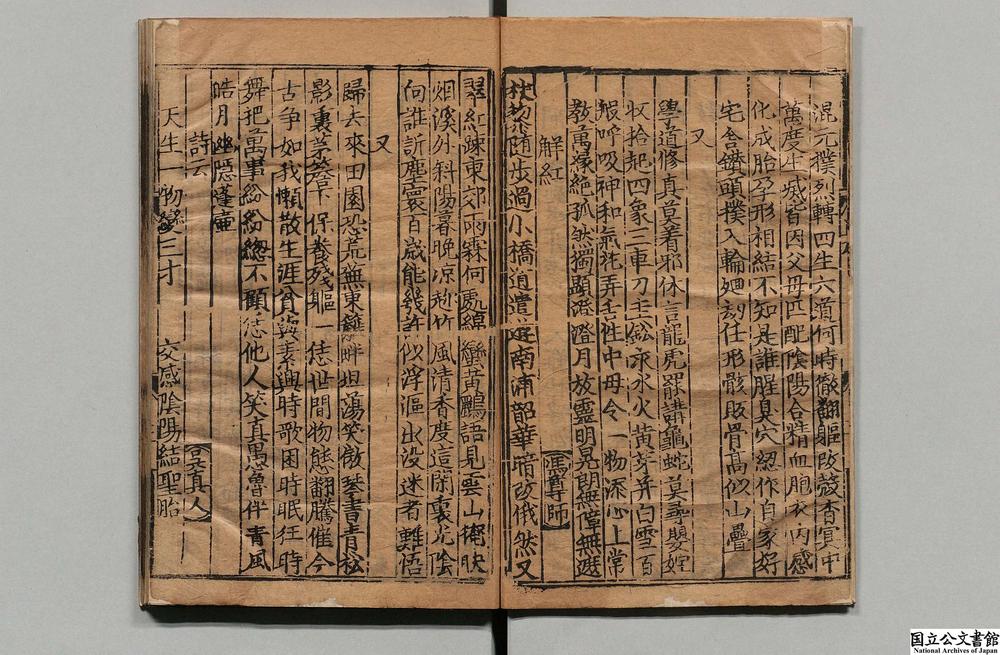 混元撲烈轉四生六道何時徹翻軀改殼杳冥中
萬度生滅皆因父母匹配陰陽合精血胞衣内感
化成胎孕形相結不知是誰腥臭穴忽作自家好
宅舍鑚頭撲入輪廻刼任形骸販骨高似山疊
又
學道修真莫着邪休言龍虎罷講龜蛇莫尋嬰姹
收拾起四象三車刀圭鈆汞水火黄芽并白雪百
般呼吸神和氣託弄壬性中毋令一物添心上常
教萬緣絶孤然獨顯澄澄月放靈明晃朗無障無遮
解紅
馮尊師
杖藜随步過小橋逍遣遊南浦韶華暗改俄然又
翠紅疎東郊雨霖何處綿蠻黄鸝語見雲山掩映
烟溪外斜陽暮晚凉趁竹風清香度這閑裏光陰
向誰訴塵寰百歲能幾許似浮漚出没迷者難悟
又
歸去來田園恐荒蕪東籬畔坦蕩笑傲琴書青松
影裏茅簷下保養殘軀一任世間物態翻騰催今
古争如我懶散生涯貧與素興時歌困時眠狂時
舞把萬事紛紛總不顧恁他人笑真愚魯伴青風
皓月幽隱蓬壷
詩云
真人
天生一物變三才　交感陰陽結聖胎
国立公文書館
National Archives of Japan